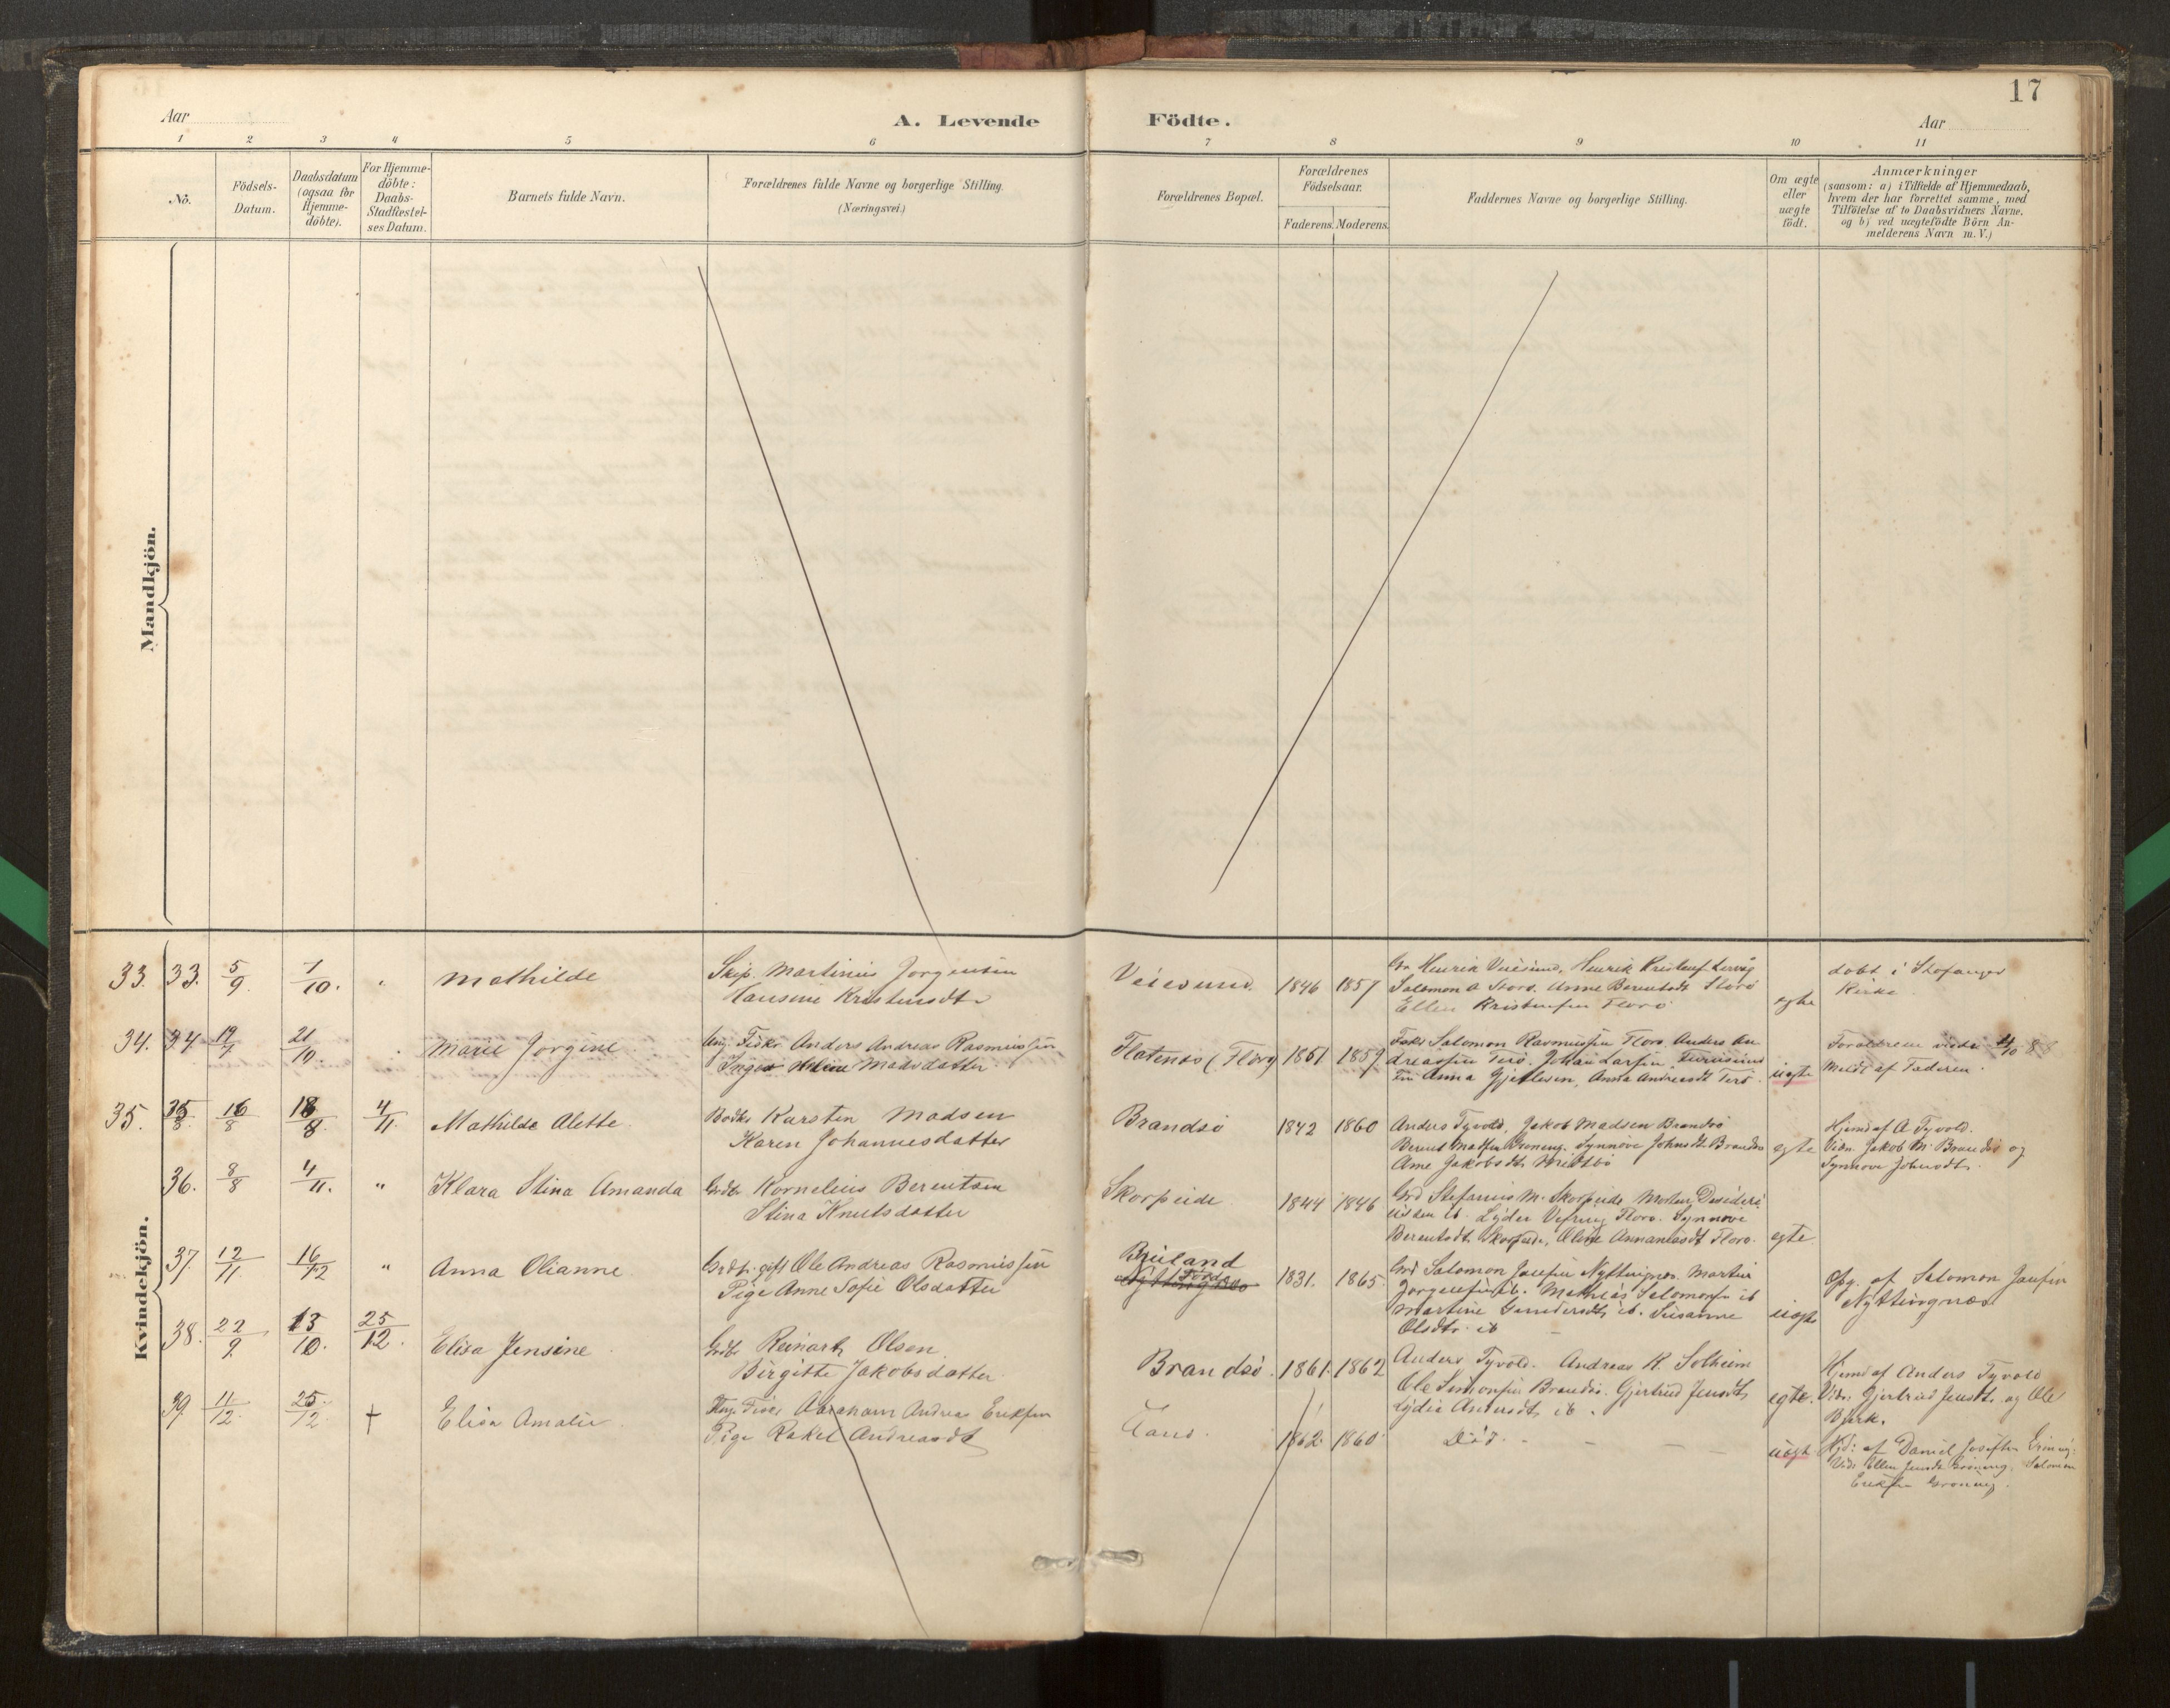 17
Aar
A. Levende
Födte.
Aar
1 2 3 4 5 6 7 8 9 10 11
No.
Födsels-
Datum.
Daabsdatum
(ogsaa for
Hjemme-
döbte).
For Hjemme-
döbte:
Daabs-
Stadfæstel-
ses Datum.
Barnets fulde Navn.
Forældrenes fulde Navne og borgerlige Stilling.
(Næringsvei.)
Forældrenes Bopæl.
Forældrenes
Födselsaar.
Faderens. Moderens.
Faddernes Navne og borgerlige Stilling.
Om ægte
eller
uægte
födt.
Anmærkninger
(saasom: a) i Tilfælde af Hjemmedaab,
hvem der har forrettet samme, med
Tilföielse af to Daabsvidners Navne,
og b) ved uægtefödte Börn An-
melderens Navn m. V.)
Mandkjön.
Kvindekjön.
33. 33. 5/9 7/10. Mathilde
Skip. Martinius Jorgensen
Hansine Kristensdtr
Veiesund. 1846 1857
Henrik Veiesund, Henrik
Salomon A Storö. Anne Berentsdt Storö
Ellen Florö
egte
döbt i Stafanger
Kirke
34. 34 19/7 21/10. Marie Jorgine
Ung. Fisker Anders Andreas Rasmussen
Inger Heline Madsdatter
Flatenæs (Florö) 1861 1859
Salomon Rasmussen Florö Anders An
dreassen Terö. Johan Larsen
Anna Gjertsen, Anna Andreasdt Terö.
uegte
Forældrene viede 4/10 88
Meldt af Faderen.
35. 35 16/8 18/8 4/11 Mathilde Alette
Karsten Madsen
Karen Johannesdatter
Brandsö 1842 1860
Anders Tyvold, Jakob Madsen Brandsö
Berent Synnöve Johnsdt. Brandsö
Ane Jakobsdt.
egte
Hjemd af A Tyvold.
Vidn. Jakob M. Brandsö og
Synnöve Johnsdt.
36. 8/8 4/11. " Klara Stina Amanda
Grdbr Kornelius Berentsen
Stina Knutsdatter
Skorpeide 1844 1846
Grd Stefanus M. Skorpeide Morten
ib. Lyder Florö. Synnöve
Berentsdt. Skorpeide, Oline Florö.
egte
37. 12/11 16/12 " Anna Olianne
Grdbr. gift Ole Andreas Rasmussen
Pige Anne Sofie Olsdatter
Nyttingnæs 1831. 1865
Grd Salomon Josefsen Nyttingnæs. Martin
Jorgensen ib. Mathias Salomonsen ib
Martine ib. Susanne
Olsdtr. ib
uegte
Opg. af Salomon
Nyttingnæs
38. 22/9. 13/10 25/12. Elisa Jensine
Grdbr Reinart Olsen
Birgitte Jakobsdatter
Brandsö. 1861. 1862
Anders Tyvold. Andreas R. Solheim
Ole Simonsen Brandsö. Gjertrud Jensdt.
Lydia Andersdt. ib.
egte.
Hjemd af Anders Tyvold
Vidn. Gjertrud Jensdt. og Ole
Bjerk.
39. 11/12. 25/12. † Elisa Amalie
Abraham Andreas Eriksen
Pige Rakel Andreasdt
1862. 1860
Död. - - - -
uegte
Hjd: af Daniel
Ellen Salomon
Eriksen